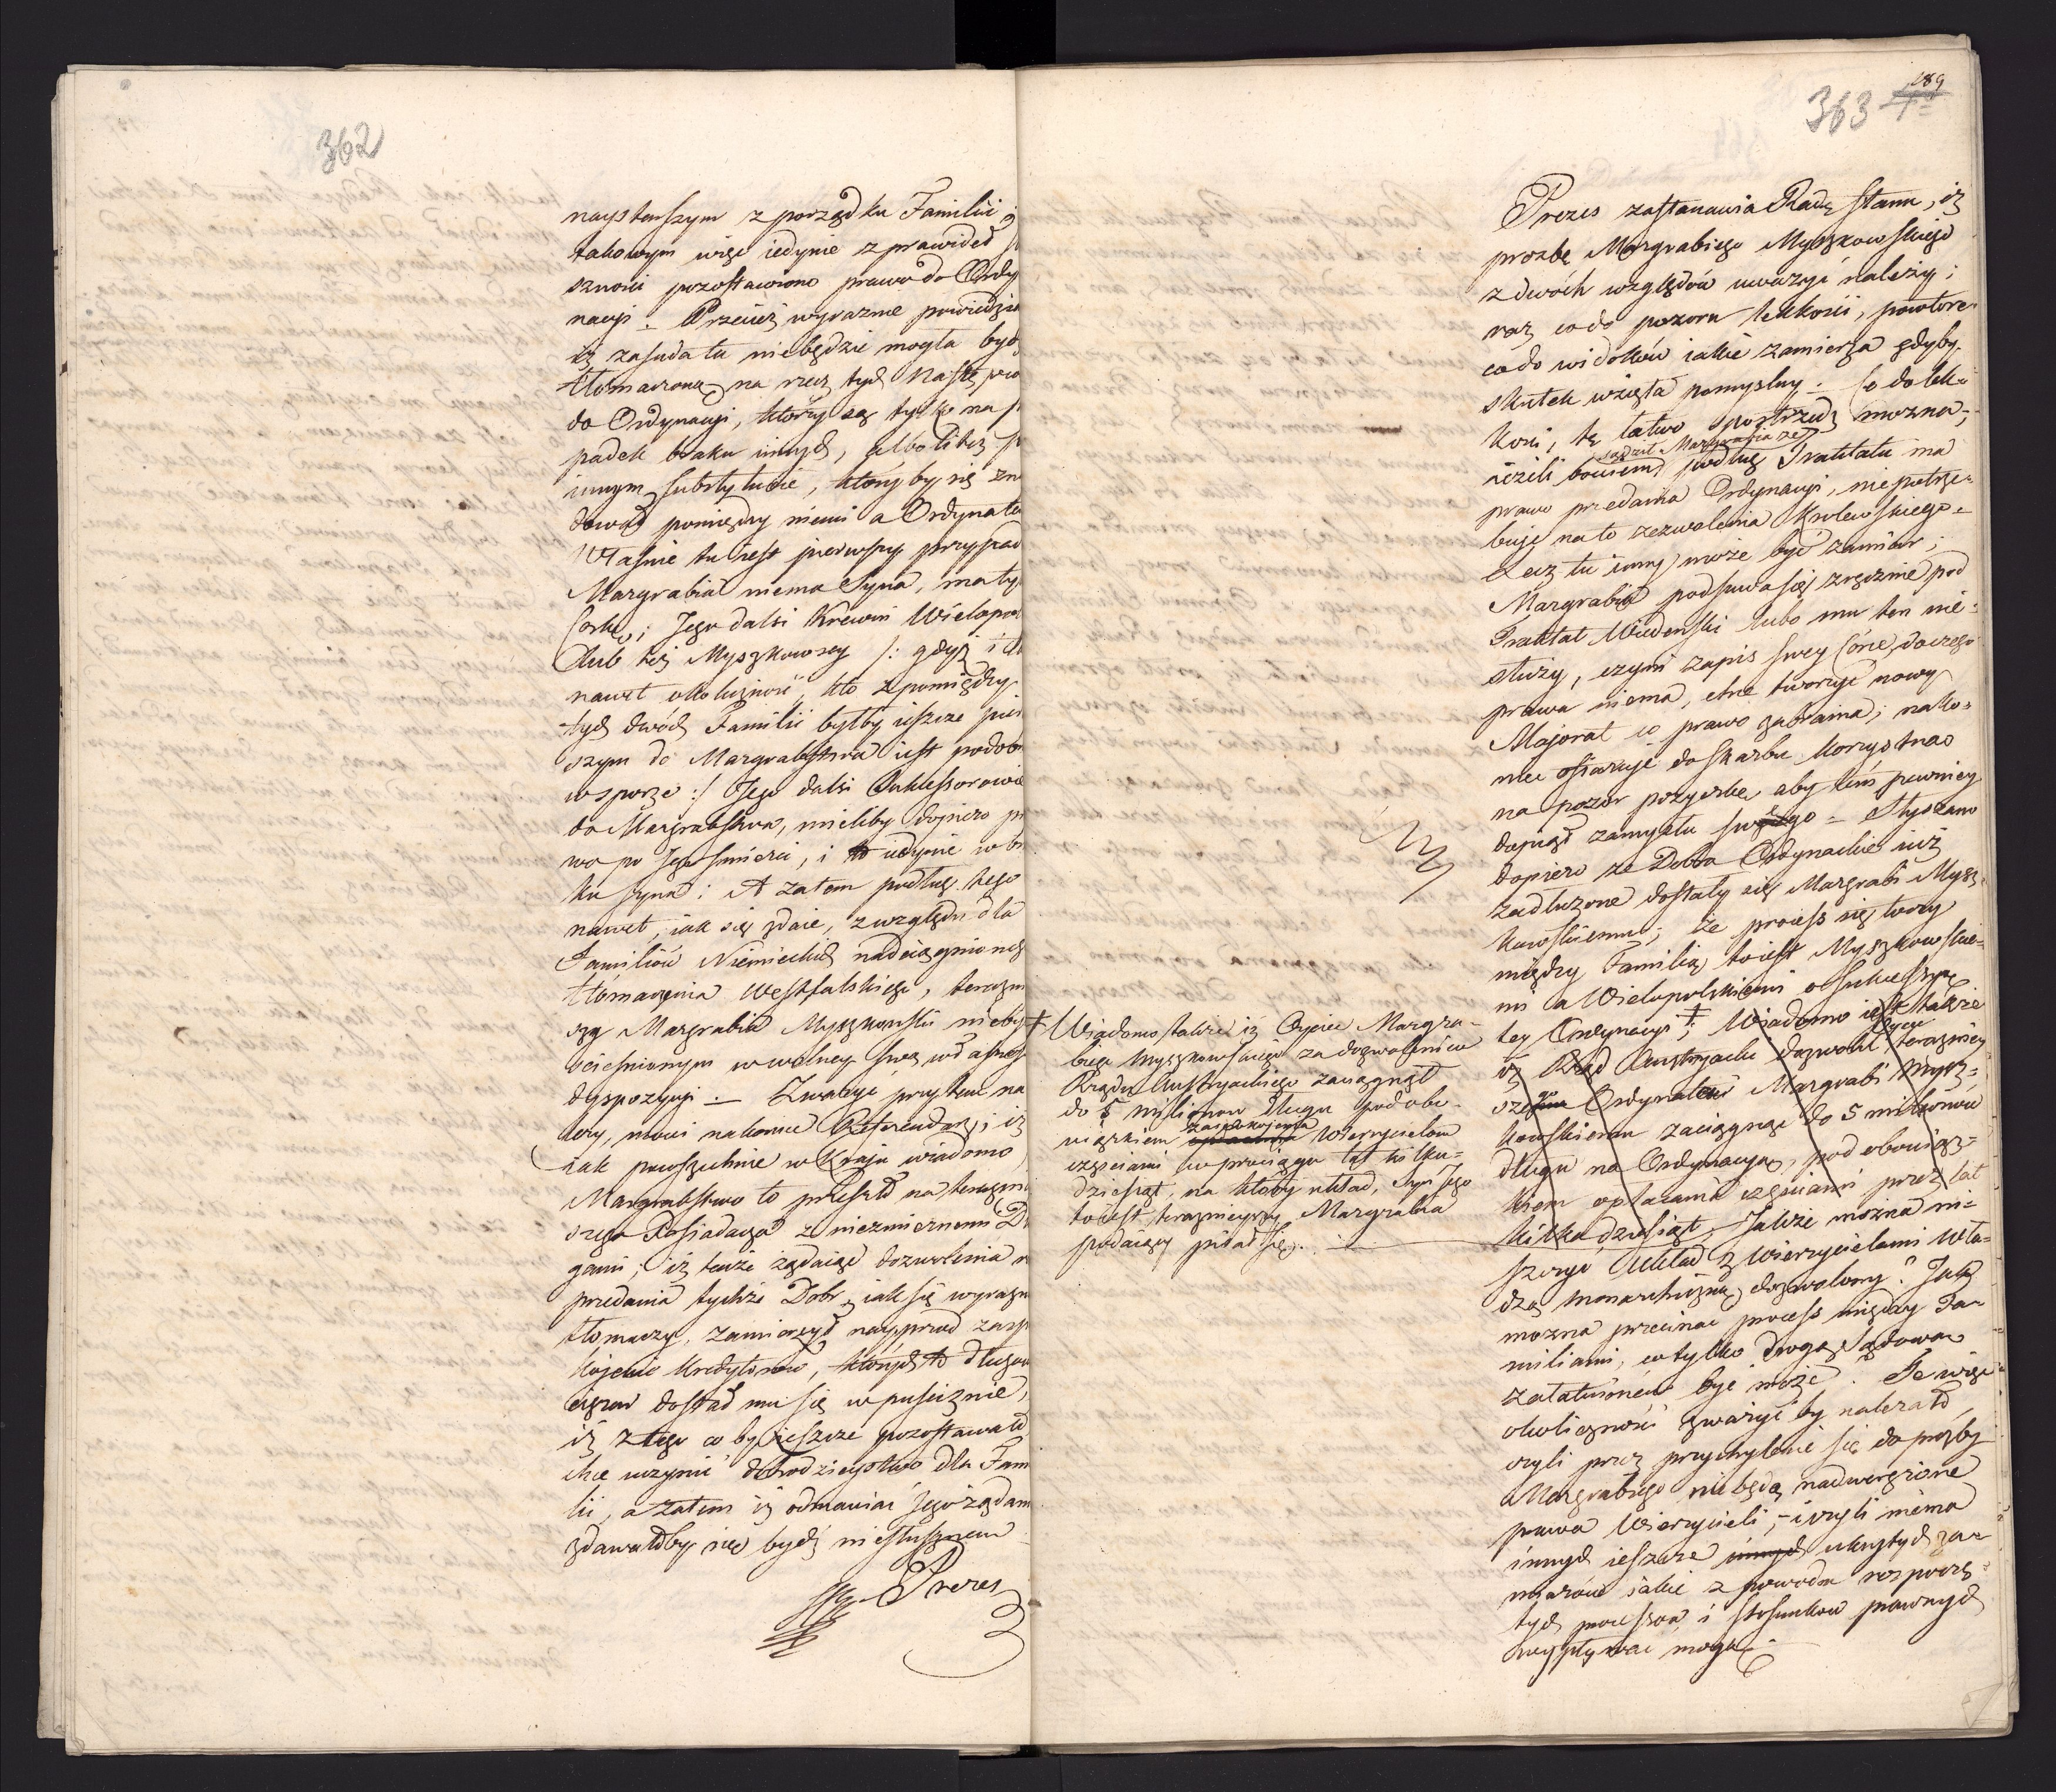 362
naystarszym z porządku Familii i
takowym więc iedynie z prawideł
szności pozostawiono prawo do Ordy
nacyi. Przecież wyraznie powiedzia
iż zasada ta niebędzie mogła bydź
tłomaczoną na rzecz tych Nastę
do Ordynacyi, którzy są tylko na
padek braku innych, albo libez
innym substytucie, który by się zna
dował pomiędzy niemi a Ordynate
Własnie tu iest pierwszy przypad
Margrabia niema Syna, ma ty
Corkę; Jego dalsi Krewni Wielopol
Club też Myszkowscy /: gdyż i ta
nawet okoliczność, kto z pomiędzy
tych dwóch Familii byłby ieszcze pier
szym do Margrabstwa iest podobn
w sporze :/ Jego dalsi Sukcessorowie
do Margrabstwa, mieliby dopiero pr
wo po Jego smierci, i to iedynie w br
ku syna: A zatem podług tego
nawet, iak się zdaie, z względu dla
Familiów Niemieckich nadciągnionego
tłomaczenia Westfalskiego, terazni
szy Margrabia Myszkowski nieby
ścieśnionym w wolney swey własnoś
dyspozycyi. — Zważyć przytem na
leży, mówi nakoniec Referendarz, iż
iak powszechnie w Kraju wiadomo
Margrabstwo to przeszło na terazni
szego Posiadacza z niezmiernemi D
gami; iż tenże żądaiąc dozwolenia
przedania tychże Dobr, iak się wyrazn
tłomaczy, zamierzył nayprzod zasp
kojenie Kredytorów, których to długow
ciężar dostał mu się w pusciznie,
iż z tego co by ieszcze pozostawało
chce uczynić dobrodzieystwo dla Fam
lii, a zatem iż odmawiać Jego żądan
zdawałoby się bydź niesłusznem
Prezes
363
189
Prezes zastanawia Radę Stanu, iż
prozbę Margrabiego Myszkowskiego
z dwóch względów uważyć należy;
raz co do pozoru lekkości, powtore
co do widoków iakie zamierza gdyby
skutek wzięła pomyslny. Co do lek-
kości, tę łatwo spostrzedz można;
sądził Margrabia że
ieżeli bowiem podług Traktatu ma
prawo przedania Ordynacyi, niepotrze-
buje na to zezwolenia Krolewskiego.
Lecz tu inny może być zamiar;
Margrabia podsuwa się zręcznie pod
Traktat Wiedenski lubo mu ten nie
służy, czyni zapis swey Córce, do czego
prawa niema, chce tworzyć nowy
Majorat co prawo zabrania; nako-
niec ofiaruje do skarbu korzystną
na pozór pożyczkę, aby tem pewniey
dopiął zamysłu swego. Słyszano
dopiero że Dobra Ordynackie już
zadłużone dostały się Margrabi Mysz-
kowskiemu; że process się toczy
między Familią to iest Myszkowskie-
mi a Wielopolskiemi o sukcessyą
tey Ordynacyi ‡; Wiadomo iest także
iż Rząd Austryacki dozwolił teraźniey
szemu Ordynatowi Margrabi Mysz-
kowskiemu zaciągnąć do 5 milionów
długu na Ordynacyą, pod obowiąz-
kiem opłacania częściami przez lat
kilkadziesiąt. Jakże można ni-
szczyć układ z Wierzycielami Wła-
dzą monarchiczną dozwolony? Jak
można przecinać process między Fa-
miliami, co tylko drogą Sądową
załatwionem być może? Te więc
okoliczności zważyć by należało,
czyli przez przychylenie się do prozby
Margrabiego niebędą nadwerężone
prawa Wierzycieli, - i czyli niema
innych ieszcze innych ukrytych za-
miarów iakie z powodu rozpoczę-
tych processów i stosunków prawnych
wypływać mogą.
‡ Wiadomo także iż Oyciec Margra-
biego Myszkowskiego za dozwoleniem
Rządu Austryackiego zaciągnął
do 5 milionow Długu pod obo-
wiązkiem
zaspokojenia
opłacania Wierzycielom
częściami w przeciągu lat kilku-
dziesiąt, na któby układ, Syn Jego
to iest terazniejszy Margrabia
podaiący pisał się.